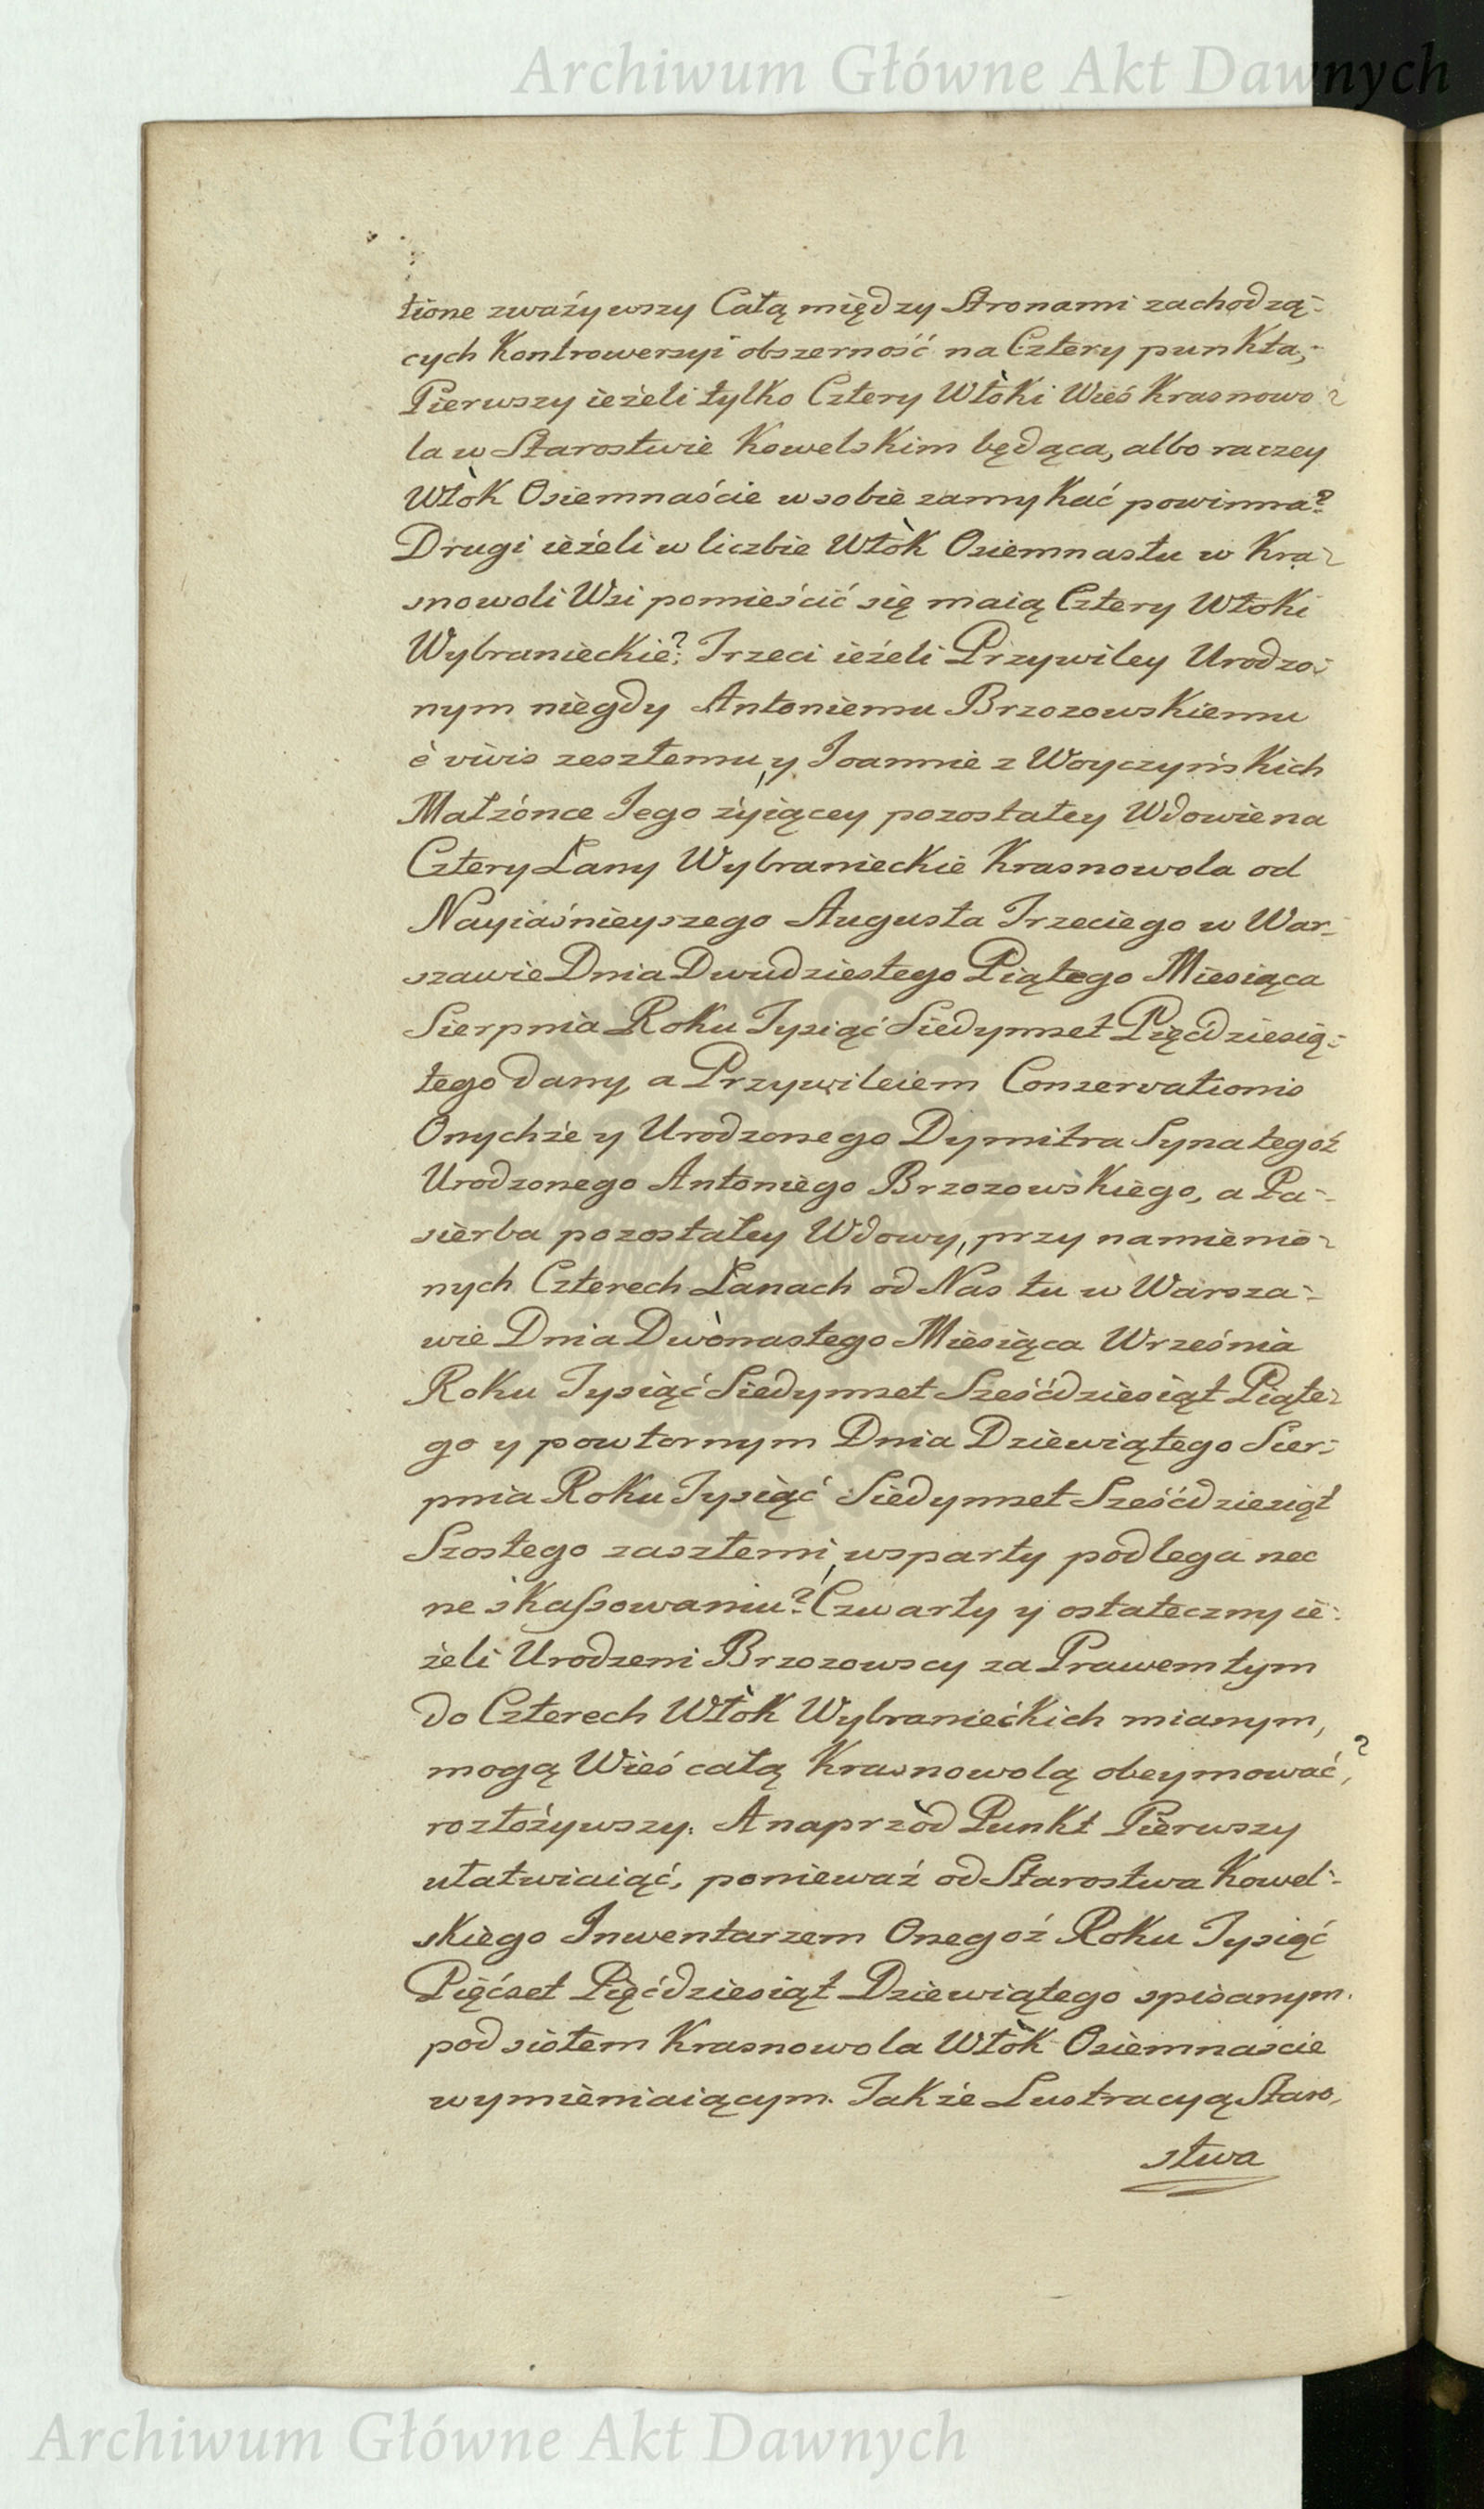 Archiwum Główne Akt Dawnych
tione zważywszy Całą między Stronami zachodzą-
cych Kontrowersyi obszerność na Cztery punkta,
Pierwszy ieżeli tylko Cztery Włóki Wieś Krasnowo-
la w Starostwie Kowelskim będąca, albo raczey
Włòk Osiemnaście w sobie zamykać powinna?
Drugi ieżeli w liczbie Włòk Osiemnastu w Kra-
snowoli Wsi pomieścić się maią Cztery Włoki
Wybranieckie? Trzeci ieżeli Przywiley Urodzo-
nym niegdy Antoniemu Brzozowskiemu
è vivis zeszłemu, y Joannie z Woyczyńskich
Małżónce Jego żyiącey pozostałey Wdowie na
Cztery Łany Wybranieckie Krasnowola od
Nayiaśnieyszego Augusta Trzeciego w War-
szawie Dnia Dwudziestego Piątego Miesiąca
Sierpnia Roku Tysiąć Siedymset Pięćdziesią-
tego dany, a Przywileiem Conservationis
Onychże y Urodzonego Dymitra Syna tegoż
Urodzonego Antoniego Brzozowskiego, a Pa-
sierba pozostałey Wdowy, przy namienio-
nych Czterech Łanach od Nas tu w Warsza-
wie Dnia Dwònastego Miesiąca Września
Roku Tysiąć Siedymset Sześćdziesiąt Piąte-
go y powtornym Dnia Dziewiątego Sier-
pnia Roku Tysiąć Siedymset Sześćdziesiąt
Szostego zaszłemi, wsparty podlega nec
ne skassowaniu? Czwarty y ostateczny ie-
żeli Urodzeni Brzozowscy za Prawem tym
do Czterech Włòk Wybranieckich mianym,
mogą Wieś całą Krasnowolą obeymować?,
rozłożywszy. A naprzòd Punkt Pierwszy
ułatwiaiąć, ponieważ od Starostwa Kowel-
skiego Inwentarzem Onegoż Roku Tysiąć
Pięćset Pięćdziesiąt Dziewiątego spisanym
pod siołem Krasnowola Włòk Osiemnaście
wymieniaiącym. Także Lustracyą Staro-
stwa
Archiwum Główne Akt Dawnych